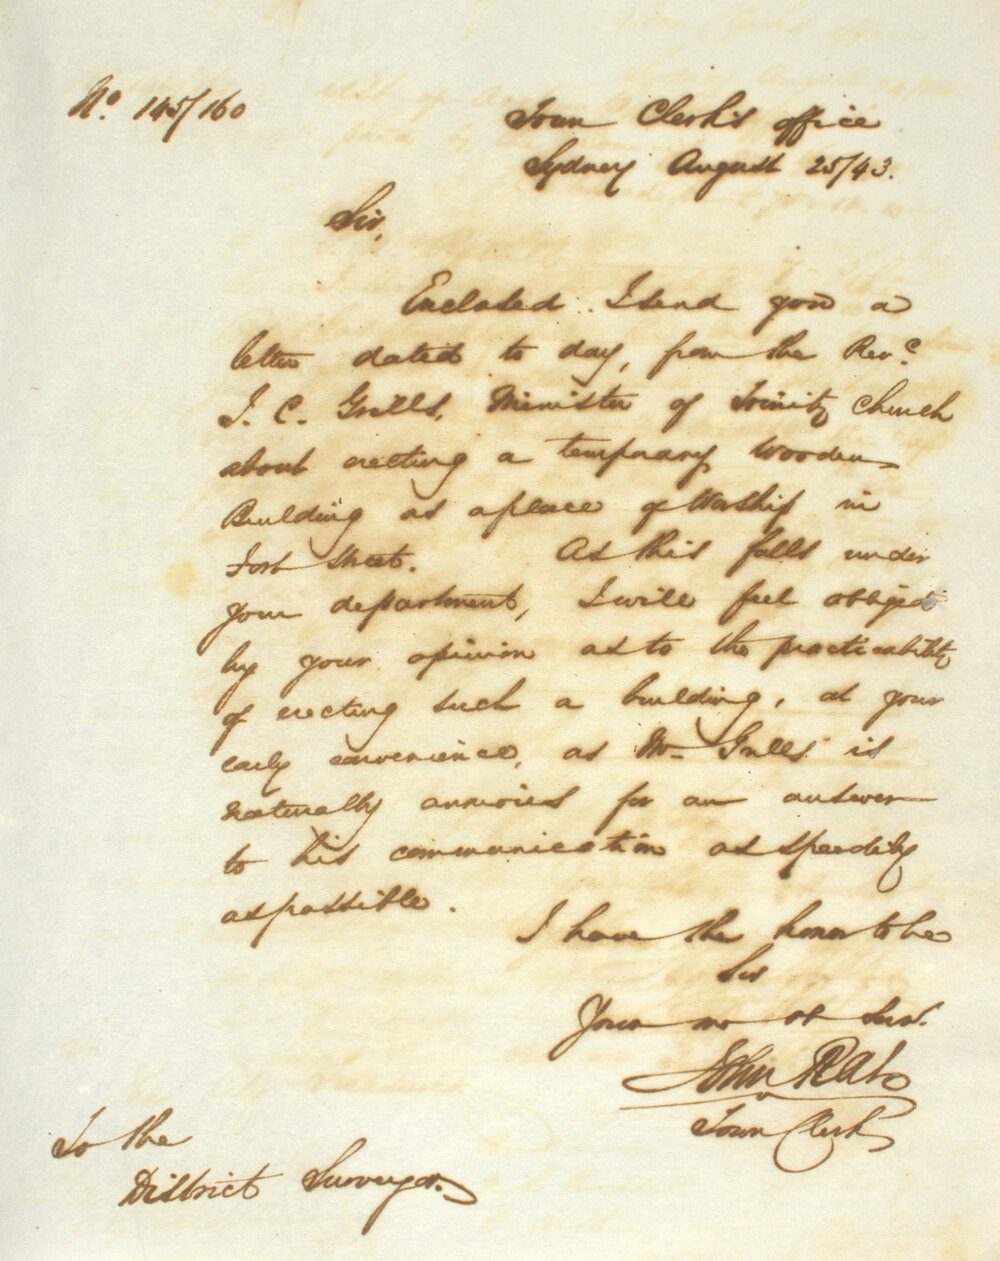 No. 145/160
Town Clerk's office
Sydney August 25/43.
Sir,
Enclosed I send you a
letter dated to day, from the Revd.
J. C. Grylls, Minister of Trinity Church
about erecting a temporary Wooden
Building as a place of Worship in
Fort Street. As this falls under
your department, I will feel obliged
by your opinion as to the practicability
of erecting such a building, at your
early convenience, as Mr Grylls is
naturally anxious for an answer
to his communication as speedily
as possible.
I have the honor to be
Sir
Your mo ob Serv.
John Rae
Town Clerk
To the
District Surveyor.